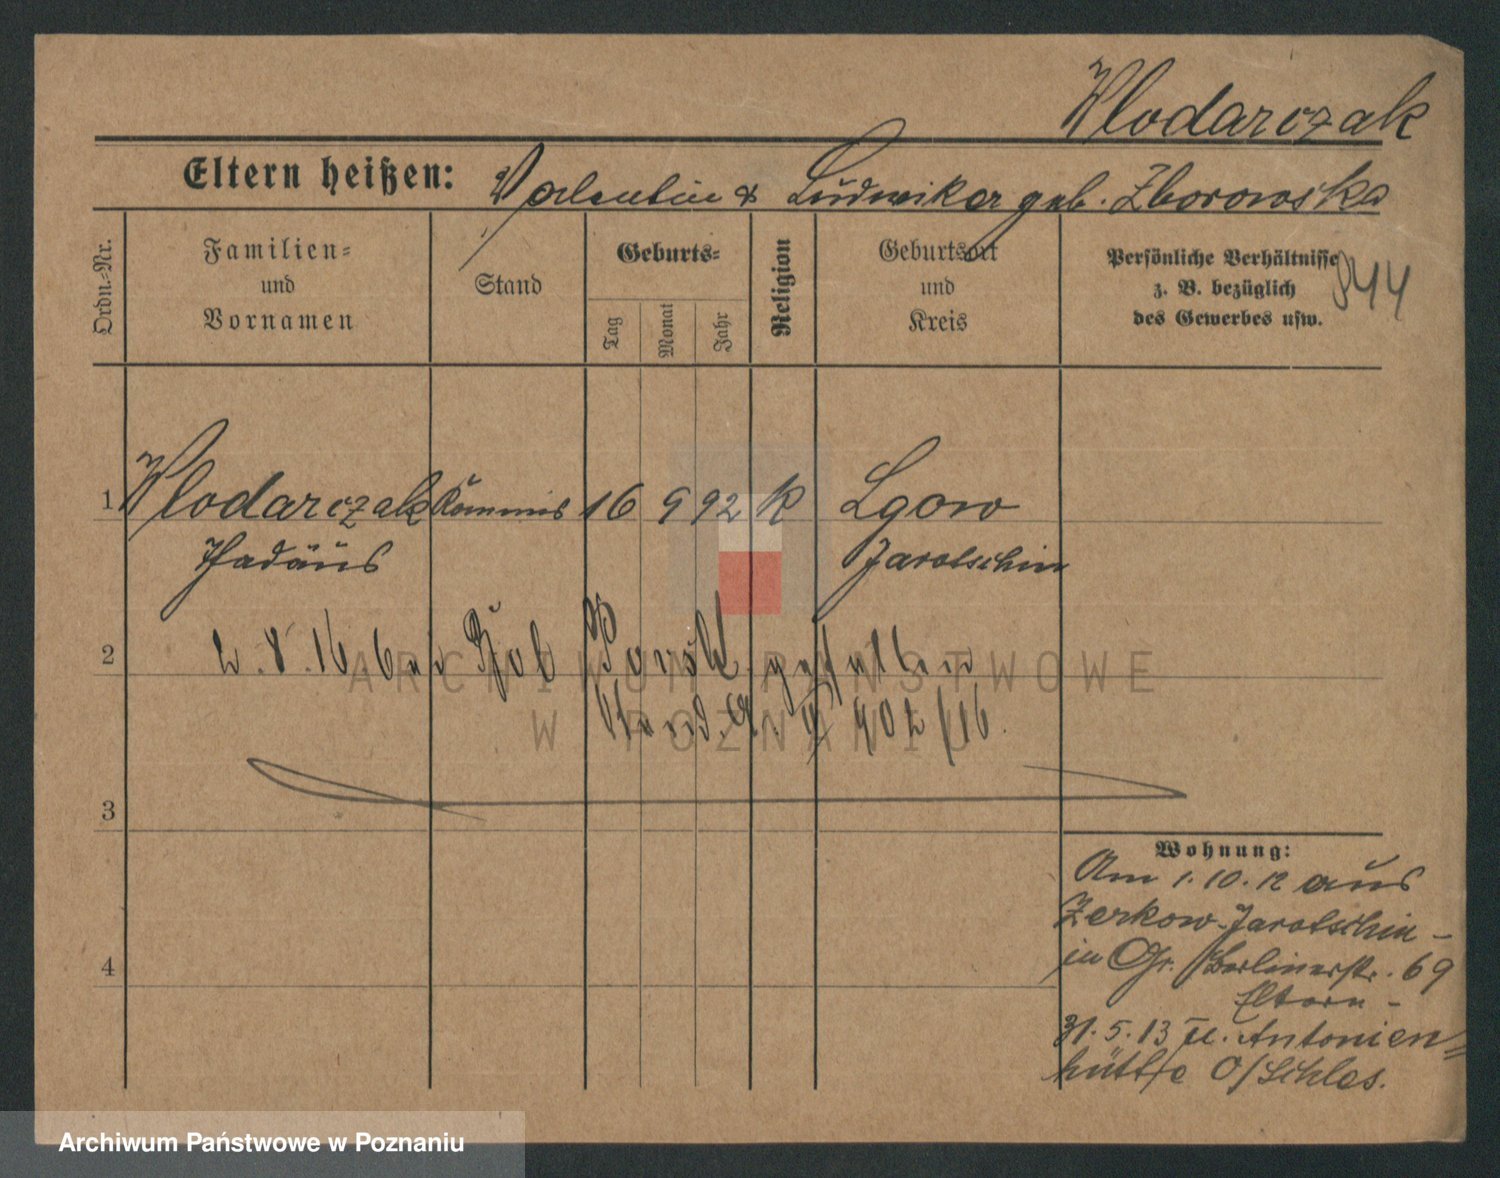 Wlodarczak
Eltern heißen: Valentin & Ludwika geb. Zborowska
Ordn.=Nr.
Familien=
und
Vornamen
Stand
Geburts=
Tag
Monat
Jahr
Religion
Geburtsort
und
Kreis
Persönliche Verhältnisse
z. B. bezüglich
des Gewerbes usw.
944
1 Wlodarczak Kommis 16 9 92 K Lgow
Thadäus Jarotschin
2 2.8.16. bei gefallen
702/16.
3
4
Wohnung:
Am 1.10.12 aus
Zerkow-Jarotschin -
in Gr. Berlinerstr. 69
Eltern -
31.5.13 n. Antonien=
hütte O/Schles.
ARCHIWUM PAŃSTWOWE
W POZNANIU
Archiwum Państwowe w Poznaniu